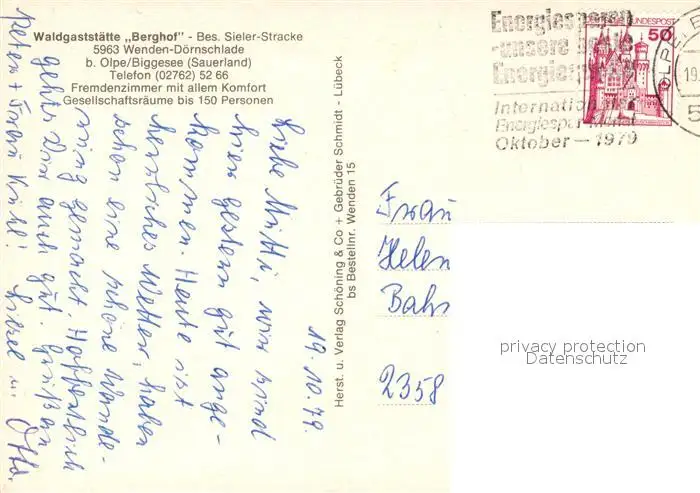 Waldgaststätte „Berghof" - Bes. Sieler-Stracke
5963 Wenden-Dörnschlade
b. Olpe/Biggesee (Sauerland)
Telefon (02762) 52 66
Fremdenzimmer mit allem Komfort
Gesellschaftsräume bis 150 Personen
19.10.79.
Liebe Mutti, wir sind
hier gestern gut ange-
kommen. Heute ist
herrliches Wetter, haben
schon eine schöne Wande-
rung gemacht. Hoffentlich
gehts Dir auch gut. Grüße an
Peter + Frau
Liesel u. Otto.
Herst. u. Verlag Schöning & Co + Gebrüder Schmidt - Lübeck
bs Bestellnr. Wenden 15
Energiesparen
-unsere beste
Energiequelle
Internationaler
Energiespar-Monat
Oktober – 1979
BUNDESPOST
50
OLPE
19.
5
Frau
Helen
Bahn
2358
privacy protection
Datenschutz